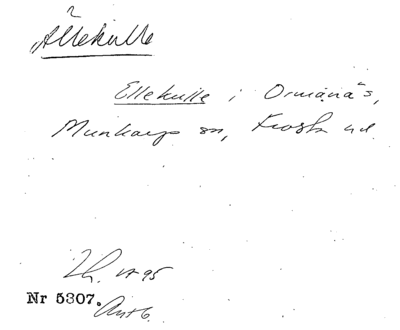 Ällekulle
Ellekulle i Ormanäs,
Munkarps sn, Frosta hd.
Nr 5307.